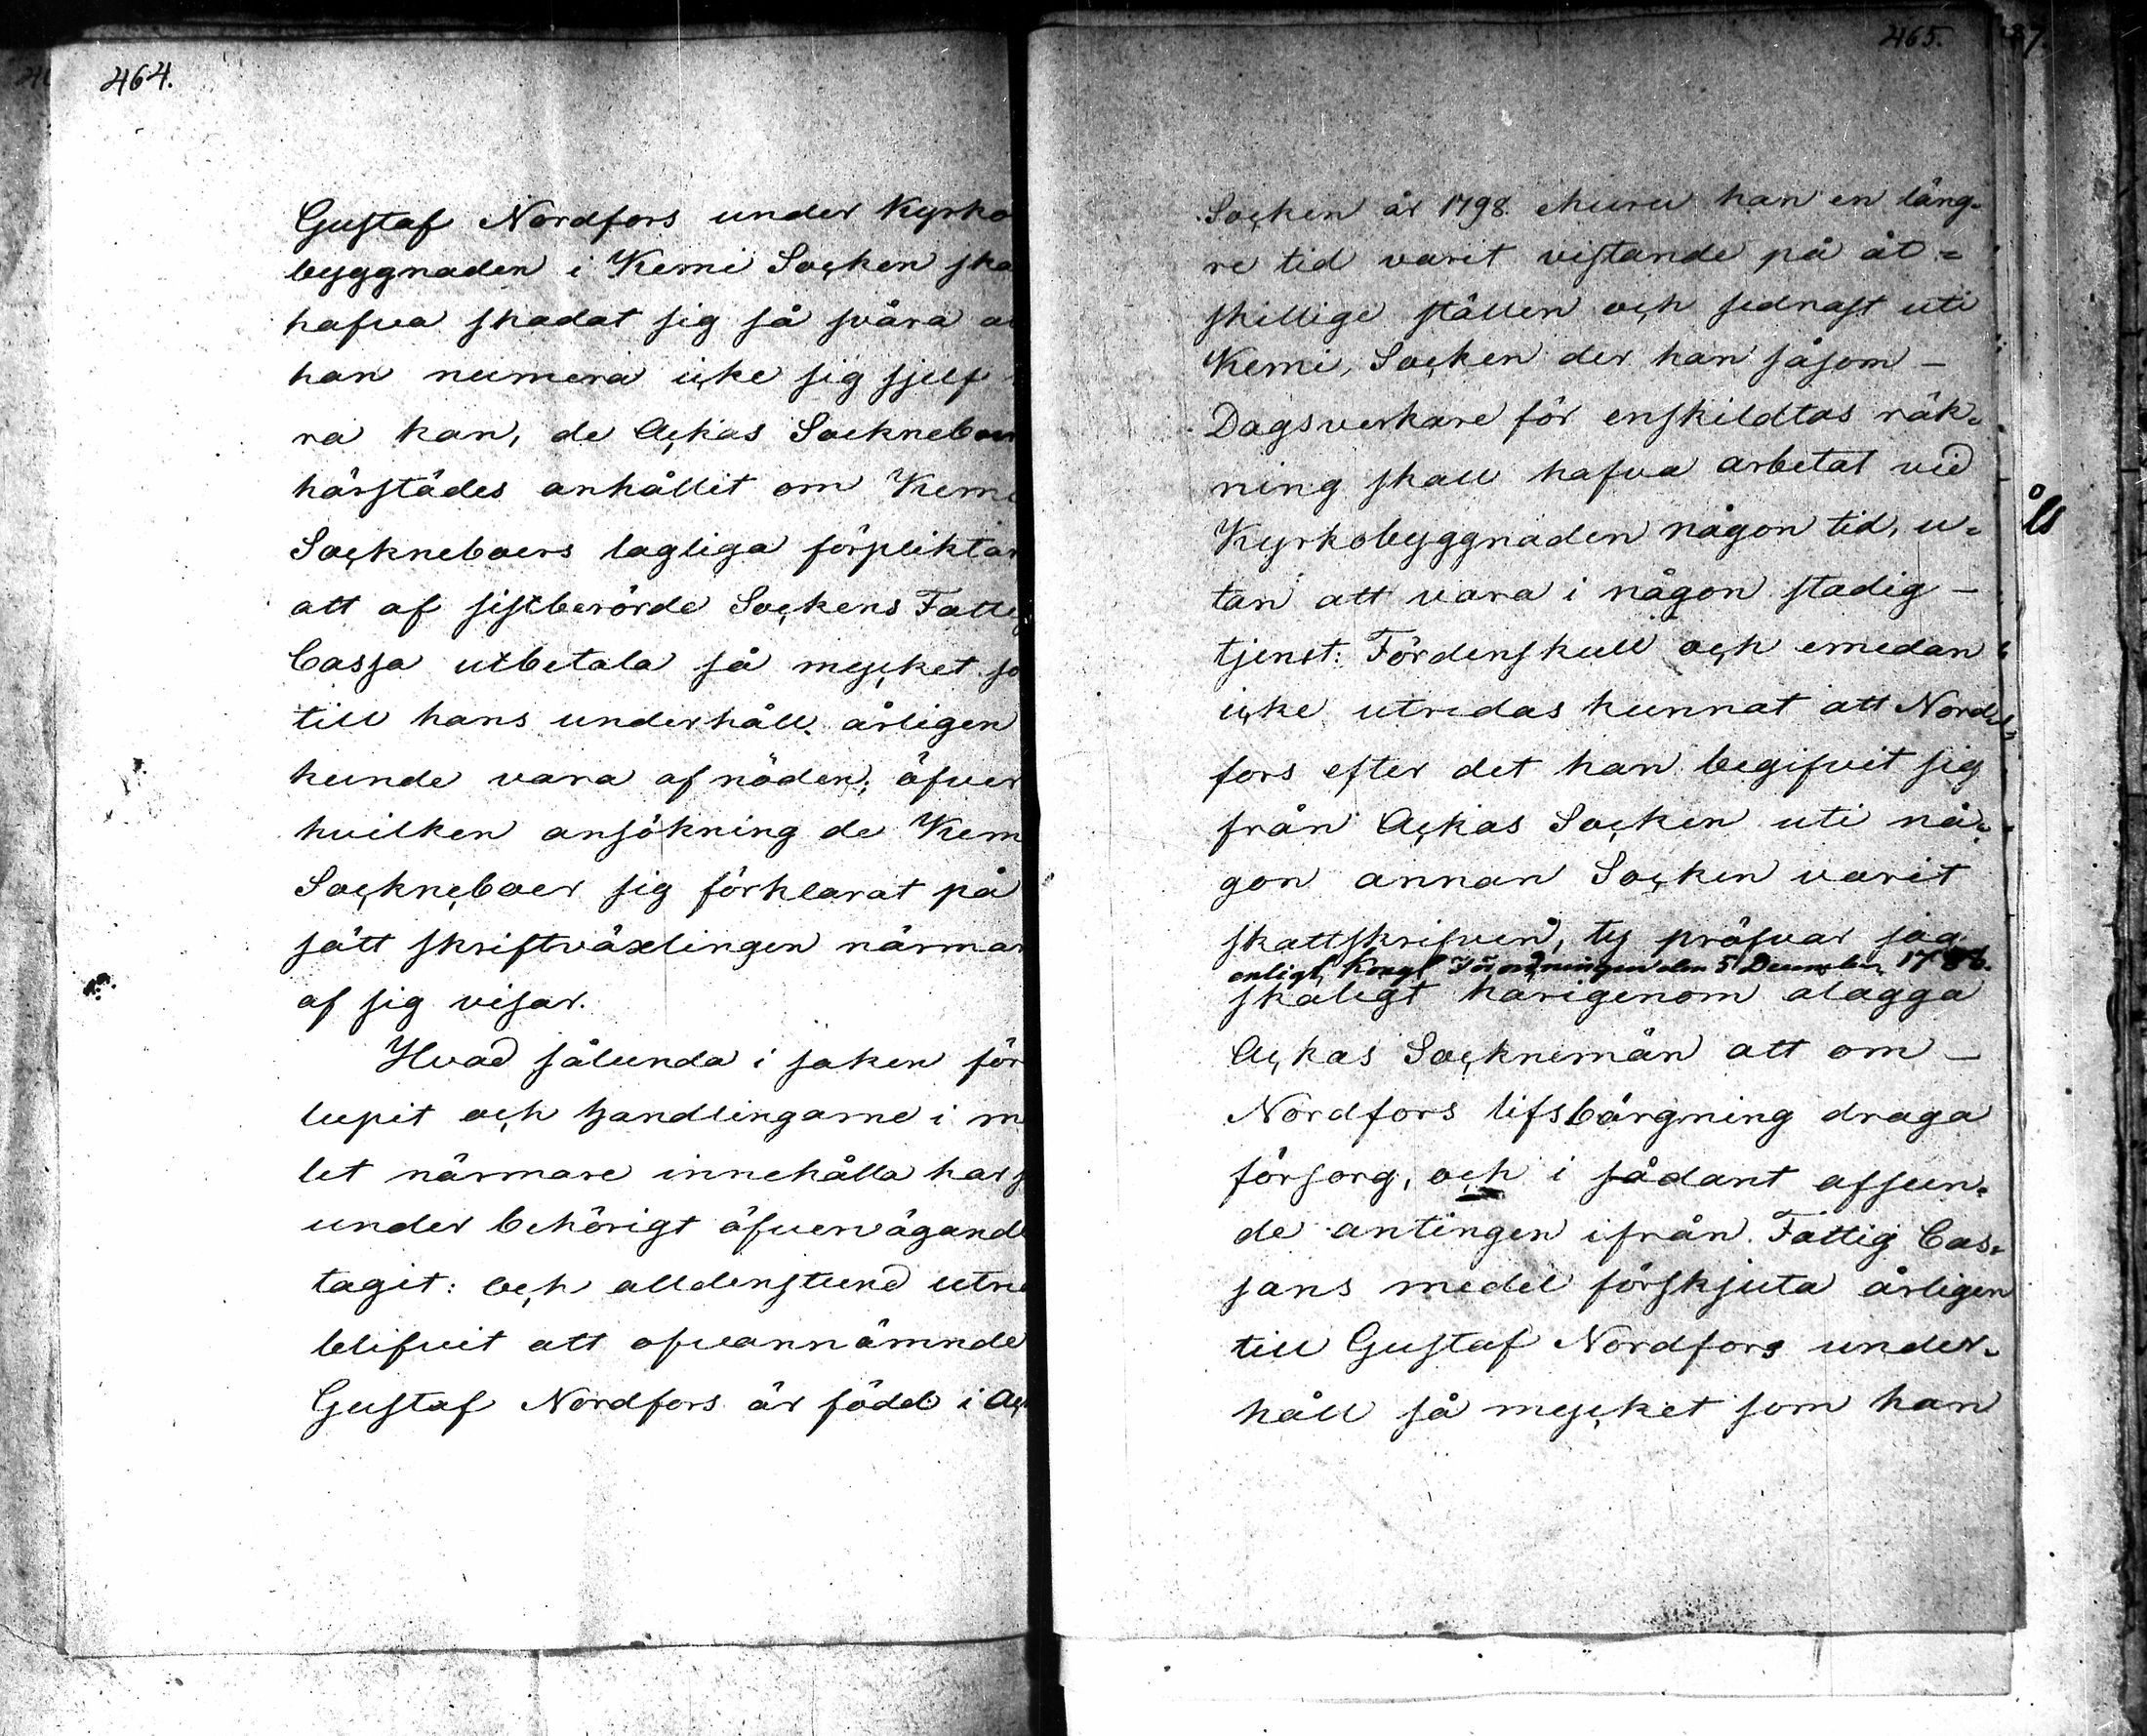 464.
Gustaf Nordfors under Kyrko
byggnaden i Kemi Socken ska
hafva skadat sig så svåra a
han numera icke sig sjelf
ra kan, de Ackas Socknebor
härstädes anhållit om Kemi
Sockneboers lagliga förpliktan
att af sistberörde Sockens Fatti
Cassa utbetala så mycket so
till hans underhåll årligen
kunde vara af nöden; öfver
hvilken ansökning de Kem
Sockneboer sig förklarat på
sätt skriftväxlingen närmar
af sig visar.
Hvad sålunda i saken för
lupit och handlingarne i m
let närmare innehålla har j
under behörigt öfvervägande
tagit: Och alldenstund utre
blifvit att ofvannämnde
Gustaf Nordfors är född i Ac
465.
Socken år 1798. ehuru han en läng-
re tid varit vistande på åt=
skillige ställen och sednast uti
Kemi, Socken der han såsom –
Dagsverkare för enskildtas räk-
ning skall hafva arbetat vid
Kyrkobyggnaden någon tid, u-
tan att vara i någon stadig –
tjenst: Fördenskull och emedan
icke utredas kunnat att Nord-
fors efter det han begifvit sig
från Ackas Socken uti nå-
gon annan Socken varit
skattskrifven, ty pröfvar jag
enligt Kongl Förordningen den 5 December 1788.
skäligt härigenom alägga
Ackas Socknemän att om –
Nordfors lifsbärgning draga
försorg, och i sådant afseen-
de antingen ifrån Fattig Cas-
sans medel förskjuta årligen
till Gustaf Nordfors under-
håll så mycket som han